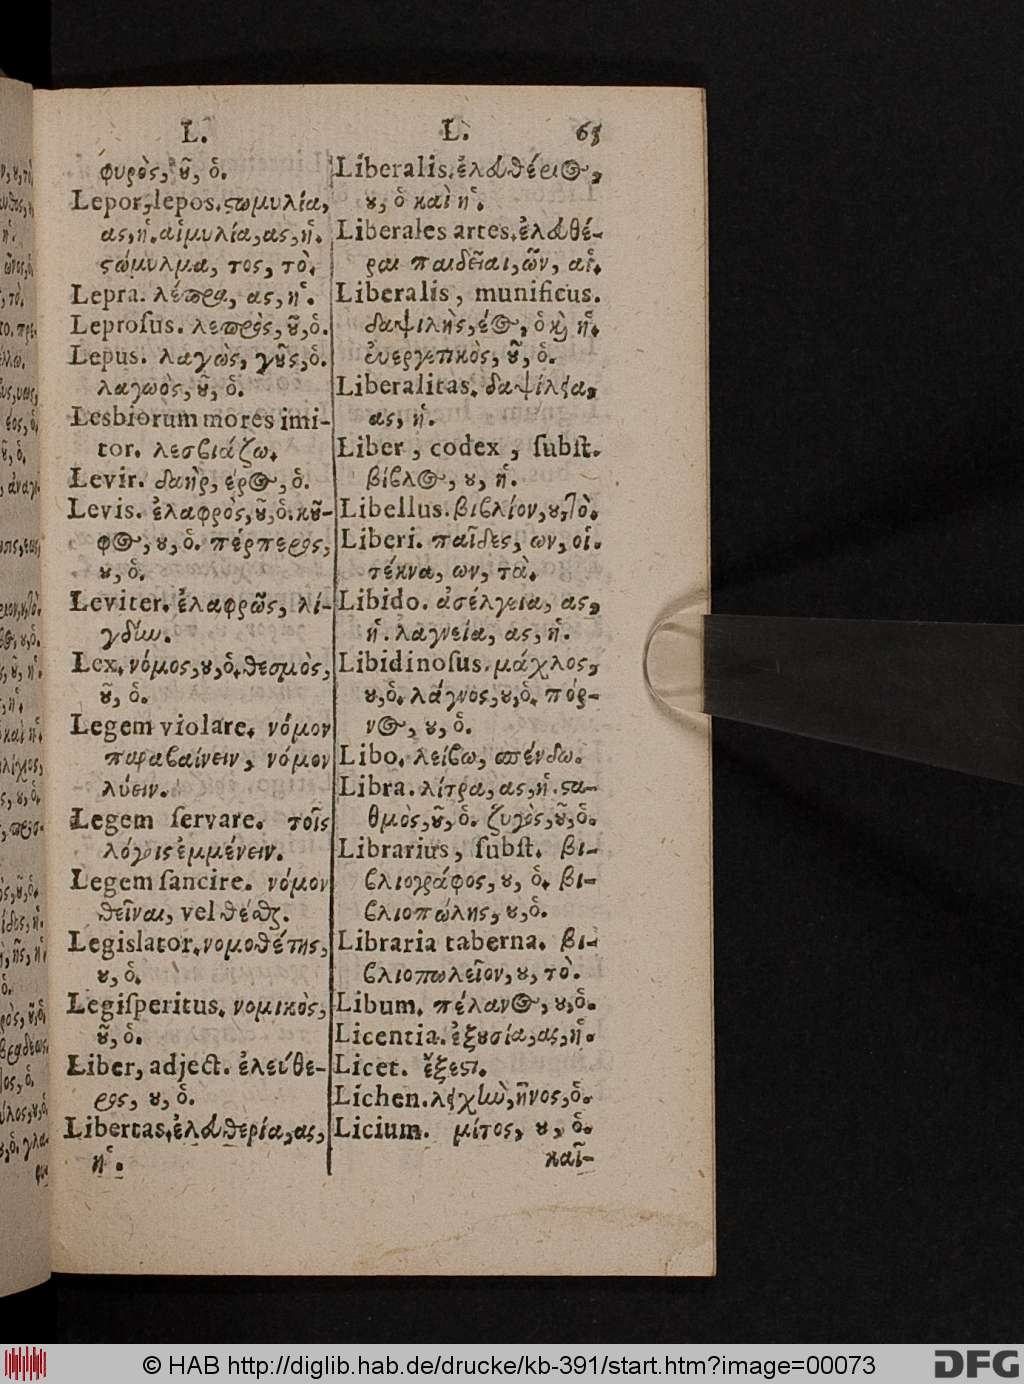 L.
φυρὸς, ȣ͂, ὁ.
Lepor, lepos. ϛωμυλία,
ας, ἡ. αἱμυλία, ας, ἡ.
ϛώμυλμα, τος, τὸ.
Lepra. λέπρα, ας, ἡ.
Leproſus. λεπρὸς, ȣ͂, ὁ.
Lepus. λαγὼς, γȣ͂ς, ὁ.
λαγωὸς, ȣ͂, ὁ.
Lesbiorum mores imi-
tor. λεσβιάζω.
Levir. δαὴρ, έρος, ὁ.
Levis. ἐλαφρὸς, ȣ͂, ὁ. κȣ͂-
φος, ȣ, ὁ. πέρπερος,
ȣ, ὁ.
Leviter. ἐλαφρῶς, λί-
γδίω.
Lex. νόμος, ȣ, ὁ. θεσμὸς,
ȣ͂, ὁ.
Legem violare. νόμον
παραβαίνειν, νόμον
λύειν.
Legem ſervare. τοῖς
λόγοις ἐμμένειν.
Legem ſancire. νόμον
θεῖναι, vel θέσθαι.
Legislator. νομοθέτης,
ȣ, ὁ.
Legiſperitus. νομικὸς,
ȣ͂, ὁ.
Liber, adject. ἐλεύθε-
ρος, ȣ, ὁ.
Libertas. ἐλευθερία, ας,
ἡ.
L. 65
Liberalis. ἐλευθέριος,
ȣ, ὁ καὶ ἡ.
Liberales artes. ἐλευθέ-
ραι παιδεῖαι, ῶν, αἱ.
Liberalis, munificus.
δαψιλὴς, έος, ὁ κὶ ἡ.
ἐυεργετικὸς, ȣ͂, ὁ.
Liberalitas. δαψίλεια,
ας, ἡ.
Liber, codex, ſubſt.
βίβλος, ȣ, ἡ.
Libellus. βιβλίον, ȣ, τὸ.
Liberi. παῖδες, ων, οἱ.
τέκνα, ων, τὰ.
Libido. ἀσέλγεια, ας,
ἡ. λαγνεία, ας, ἡ.
Libidinoſus. μάχλος,
ȣ, ὁ. λάγνος, ȣ, ὁ. πόρ-
νος, ȣ, ὁ.
Libo. λείβω, σπένδω.
Libra. λίτρα, ας, ἡ. ϛα-
θμὸς, ȣ͂, ὁ. ζυγὸς, ȣ͂, ὁ.
Librarius, ſubſt. βι-
βλιογράφος, ȣ, ὁ. βι-
βλιοπώλης, ȣ, ὁ.
Libraria taberna. βι-
βλιοπωλεῖον, ȣ, τὸ.
Libum. πέλανος, ȣ, ὁ.
Licentia. ἐξȣσία, ας, ἡ.
Licet. ἔξεϛι.
Lichen. λειχὴν, ῆνος, ὁ.
Licium. μίτος, ȣ, ὁ.
καῖ-
© HAB http://diglib.hab.de/drucke/kb-391/start.htm?image=00073
DFG